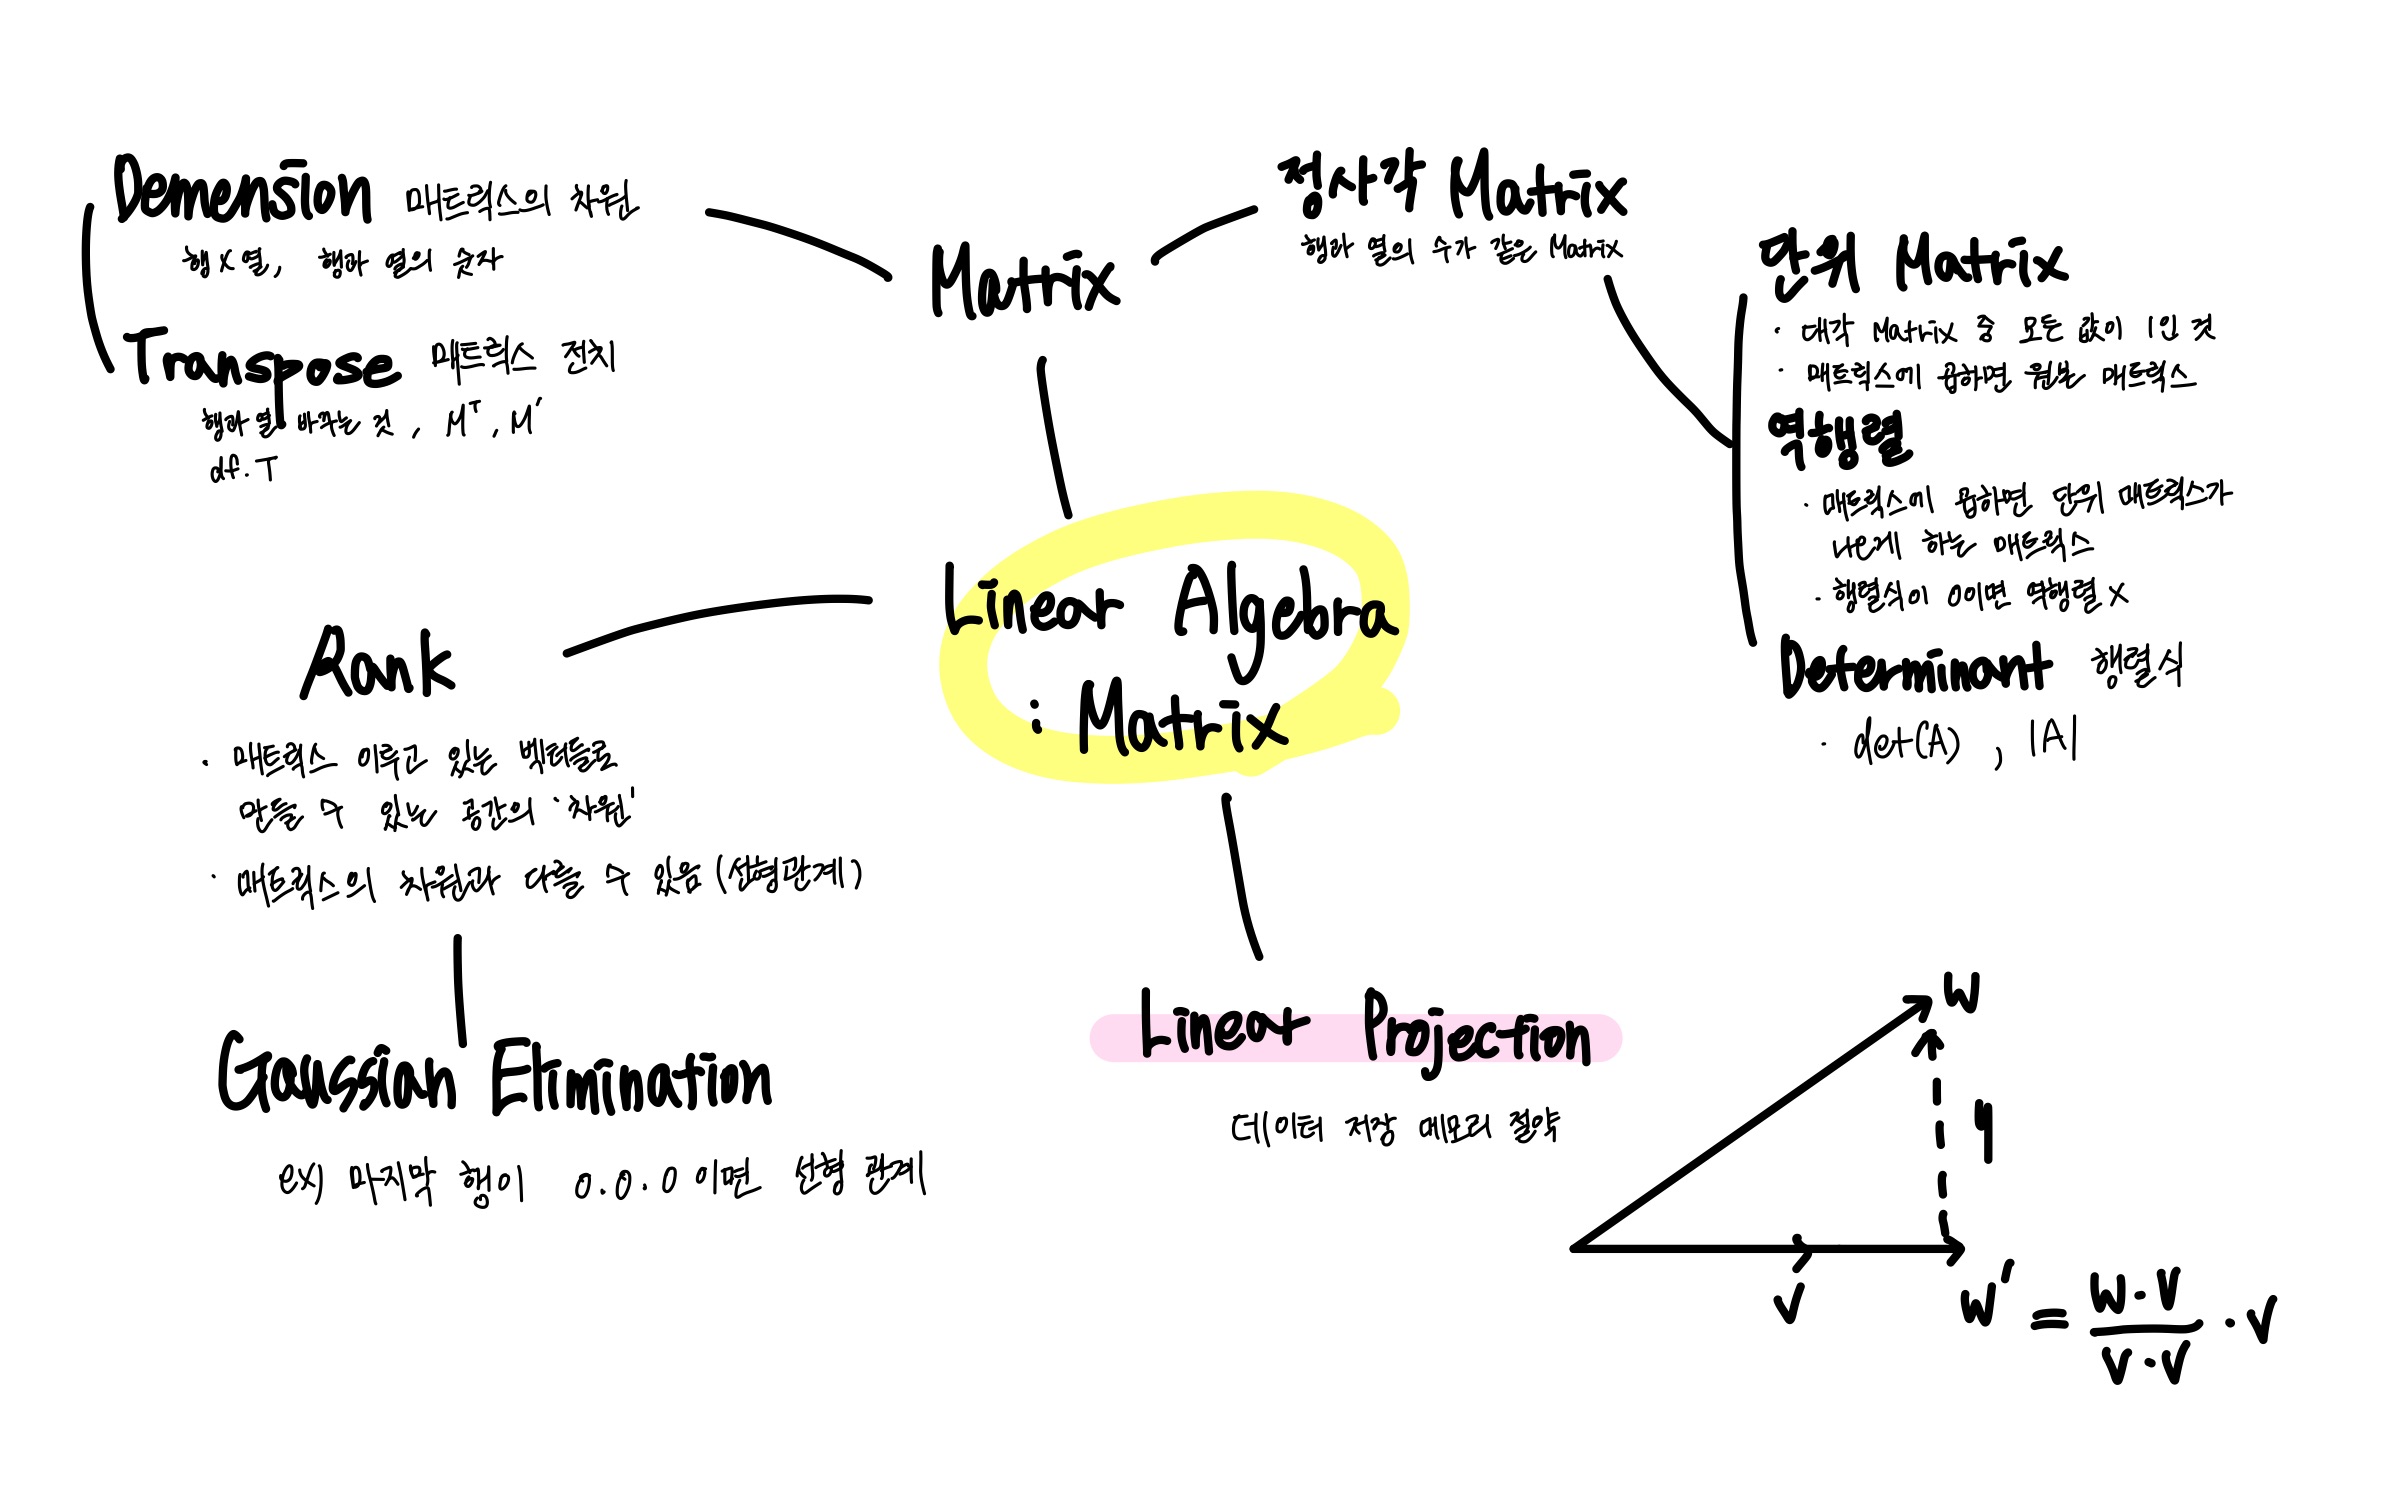 Demension 매트릭스의 차원
행x열, 행과 열의 숫자
Transpose 매트릭스 전치
행과 열 바꾸는 것, Mᵀ, M′
df.T
Matrix
정사각 Matrix
행과 열의 수가 같은 Matrix
단위 Matrix
· 대각 Matrix 중 모든 값이 1인 것
· 매트릭스에 곱하면 원본 매트릭스
역행렬
· 매트릭스에 곱하면 단위 매트릭스가
나온게 하는 매트릭스
· 행렬식이 0이면 역행렬 X
Determinant 행렬식
· det(A), |A|
Linear Algebra
: Matrix
Rank
· 매트릭스 이루고 있는 벡터들로
만들 수 있는 공간의 '차원'
· 매트릭스의 차원과 다를 수 있음 (선형관계)
Gaussian Elimination
ex) 마지막 행이 0.0.0이면 선형 관계
Linear Projection
데이터 저장 메모리 절약
w
y
v
w′ = w·v / v·v · v